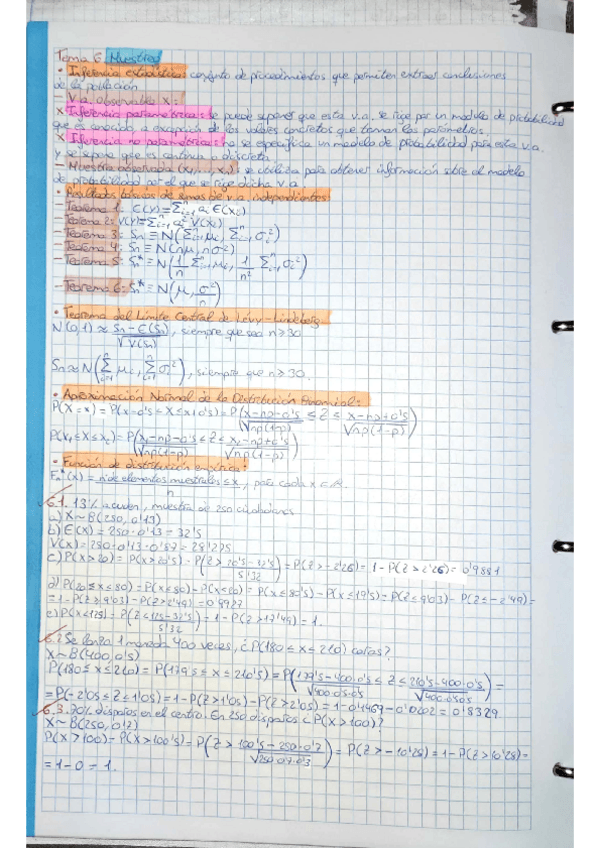 Tema 6 Muestreo
• Inferencia estadística: conjunto de procedimientos que permiten extraer conclusiones
de la población
- V.a. observable X:
x Inferencia paramétrica: se puede suponer que esta v.a. se rige por un modelo de probabilidad
que es conocido, a excepción de los valores concretos que toman los parámetros.
x Inferencia no paramétrica: no se especifica un modelo de probabilidad para esta v.a.
y se supone que es continua o discreta.
- Muestra observada (x₁,..., xₙ): se utiliza para obtener información sobre el modelo
de probabilidad por el que se rige dicha v.a
• Resultados básicos de sumas de v.a. independientes:
- Teorema 1: E(Y)=Σⁿᵢ₌₁ aᵢ E(Xᵢ)
- Teorema 2: V(Y)=Σⁿᵢ₌₁ aᵢ² V(Xᵢ)
- Teorema 3: Sn ≡ N(Σⁿᵢ₌₁ μᵢ, Σⁿᵢ₌₁ σᵢ²)
- Teorema 4: Sn ≡ N(nμ, nσ²)
- Teorema 5: Sn* ≡ N(1/n Σⁿᵢ₌₁ μᵢ, 1/n² Σⁿᵢ₌₁ σᵢ²)
- Teorema 6: Sn* ≡ N(μ, σ²/n)
• Teorema del Límite Central de Lévy-Lindeberg
N(0,1) ≈ Sn - E(Sn) / √V(Sn), siempre que sea n ≥ 30
Sn ≈ N(Σⁿᵢ₌₁ μᵢ, Σⁿᵢ₌₁ σᵢ²), siempre que n ≥ 30.
• Aproximación Normal de la Distribución Binomial:
P(X=x) = P(x-0'5 ≤ X ≤ x+0'5) = P(x-np-0'5/√np(1-p) ≤ Z ≤ x-np+0'5/√np(1-p))
P(x₁ ≤ X ≤ x₂) = P(x₁-np-0'5/√np(1-p) ≤ Z ≤ x₂-np+0'5/√np(1-p))
• Función de distribución empírica:
Fn*(x) = nº de elementos muestrales ≤ x / n, para cada x ∈ R.
6.1. 13% acuden, muestra de 250 ciudadanos
a) X~B(250, 0'13)
b) E(X) = 250·0'13 = 32'5
V(X) = 250·0'13·0'87 = 28'275
c) P(X>20) = P(X>20'5) = P(Z > 20'5-32'5/5'32) = P(Z > -2'26) = 1 - P(Z > 2'26) = 0'9881
d) P(20≤X≤80) = P(X≤80) - P(X<20) = P(X≤80'5) - P(X≤19'5) = P(Z≤9'03) - P(Z≤-2'49) =
= 1 - P(Z>9'03) - P(Z>2'49) = 0'9927
6.2 Se lanza 1 moneda 400 veces, ¿P(180≤X≤210) caras?
X~B(400, 0'5)
P(180≤X≤210) = P(179'5≤X≤210'5) = P(179'5-400·0'5/√400·0'5·0'5 ≤ Z ≤ 210'5-400·0'5/√400·0'5·0'5) =
= P(-2'05≤Z≤1'05) = 1 - P(Z>1'05) - P(Z>2'05) = 1 - 0'1469 - 0'0202 = 0'8329
6.3. 70% disparos en el centro. En 250 disparos ¿P(X>100)?
X~B(250, 0'7)
P(X>100) = P(X>100'5) = P(Z > 100'5-250·0'7/√250·0'7·0'3) = P(Z > -10'28) = 1 - P(Z > 10'28) =
= 1 - 0 = 1.